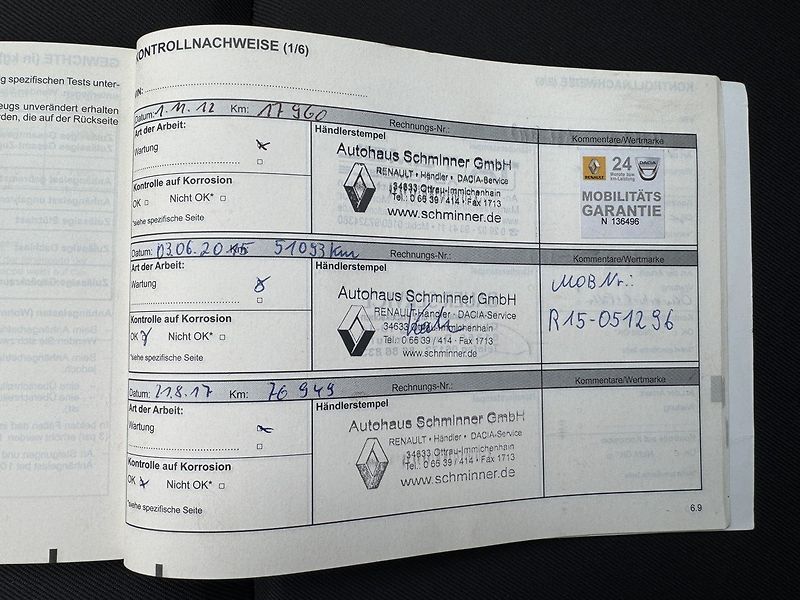 GEWICHTE (in kg)
g spezifischen Tests unter-
eugs unverändert erhalten
rden, die auf der Rückseite
KONTROLLNACHWEISE (1/6)
VIN:
Datum: 1.11.12 Km: 17 960 Rechnungs-Nr.: Kommentare/Wertmarke
Art der Arbeit:
Wartung x
Kontrolle auf Korrosion
OK □ Nicht OK* □
*siehe spezifische Seite
Händlerstempel
Autohaus Schminner GmbH
RENAULT • Händler • DACIA-Service
34633 Ottrau-Immichenhain
Tel.: 0 66 39 / 414 • Fax 1713
www.schminner.de
RENAULT 24 DACIA
Monate bzw.
km-Leistung
MOBILITÄTS
GARANTIE
N 136496
Datum: 03.06.2015 51093 Km Rechnungs-Nr.: Kommentare/Wertmarke
Art der Arbeit:
Wartung x
Kontrolle auf Korrosion
OK x Nicht OK* □
*siehe spezifische Seite
Händlerstempel
Autohaus Schminner GmbH
RENAULT • Händler • DACIA-Service
34633 Ottrau-Immichenhain
Tel.: 0 66 39 / 414 • Fax 1713
www.schminner.de
MOB Nr.:
R15-051296
Datum: 21.8.17 Km: 76 949 Rechnungs-Nr.: Kommentare/Wertmarke
Art der Arbeit:
Wartung x
Kontrolle auf Korrosion
OK x Nicht OK* □
*siehe spezifische Seite
Händlerstempel
Autohaus Schminner GmbH
RENAULT • Händler • DACIA-Service
34633 Ottrau-Immichenhain
Tel.: 0 66 39 / 414 • Fax 1713
www.schminner.de
6.9